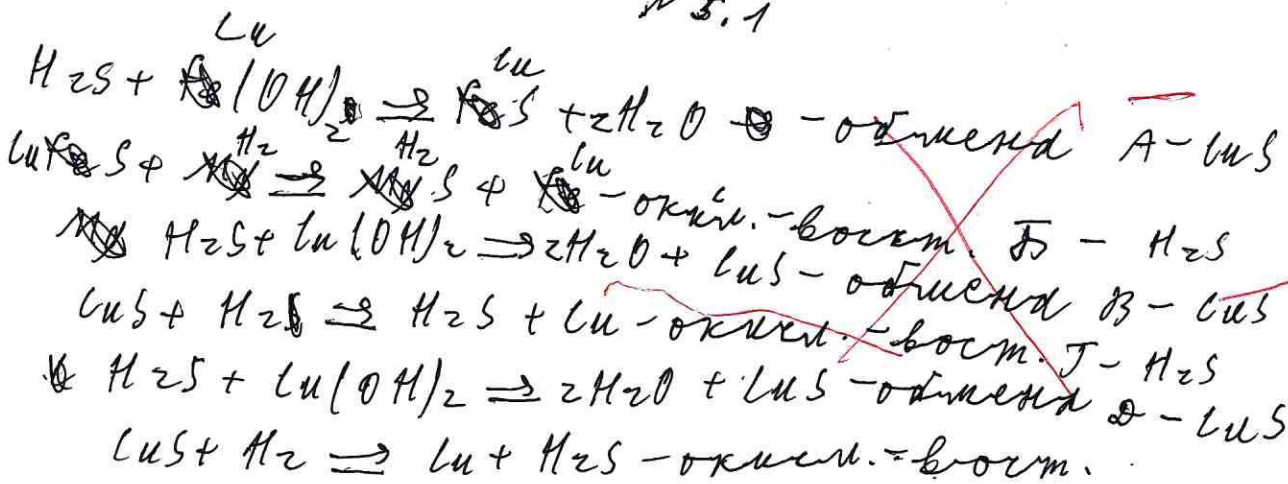 № 5.1
H2S + Cu(OH)2 ⇒ CuS + 2H2O - обмена А - CuS
CuS + H2 ⇒ H2S + Cu - окисл. - восст. Б - H2S
H2S + Cu(OH)2 ⇒ 2H2O + CuS - обмена В - CuS
CuS + H2 ⇒ H2S + Cu - окисл. - восст. Г - H2S
H2S + Cu(OH)2 ⇒ 2H2O + CuS - обмена Д - CuS
CuS + H2 ⇒ Cu + H2S - окисл. - восст.